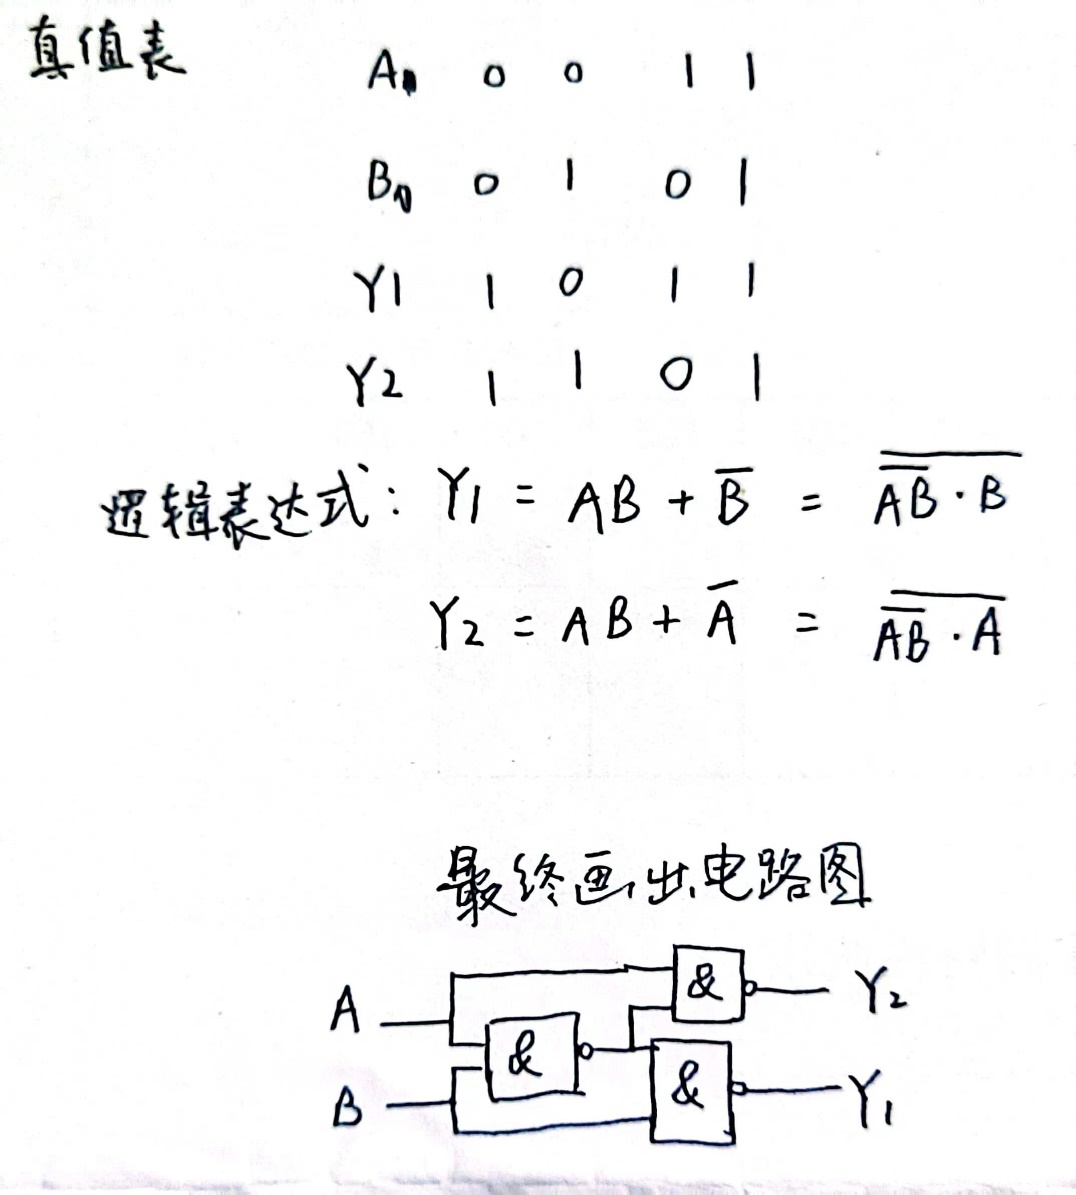 真值表
A 0 0 1 1
B 0 1 0 1
Y1 1 0 1 1
Y2 1 1 0 1
逻辑表达式: Y₁ = AB + B̅ = \overline{\overline{AB}·B}
Y₂ = AB + A̅ = \overline{\overline{AB}·A}
最终画出电路图
& Y₂
A &
B & Y₁